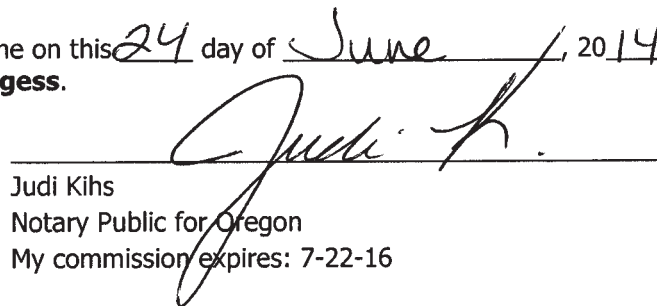 ne on this 24 day of June, 2014
gess.
Judi K.
Judi Kihs
Notary Public for Oregon
My commission expires: 7-22-16